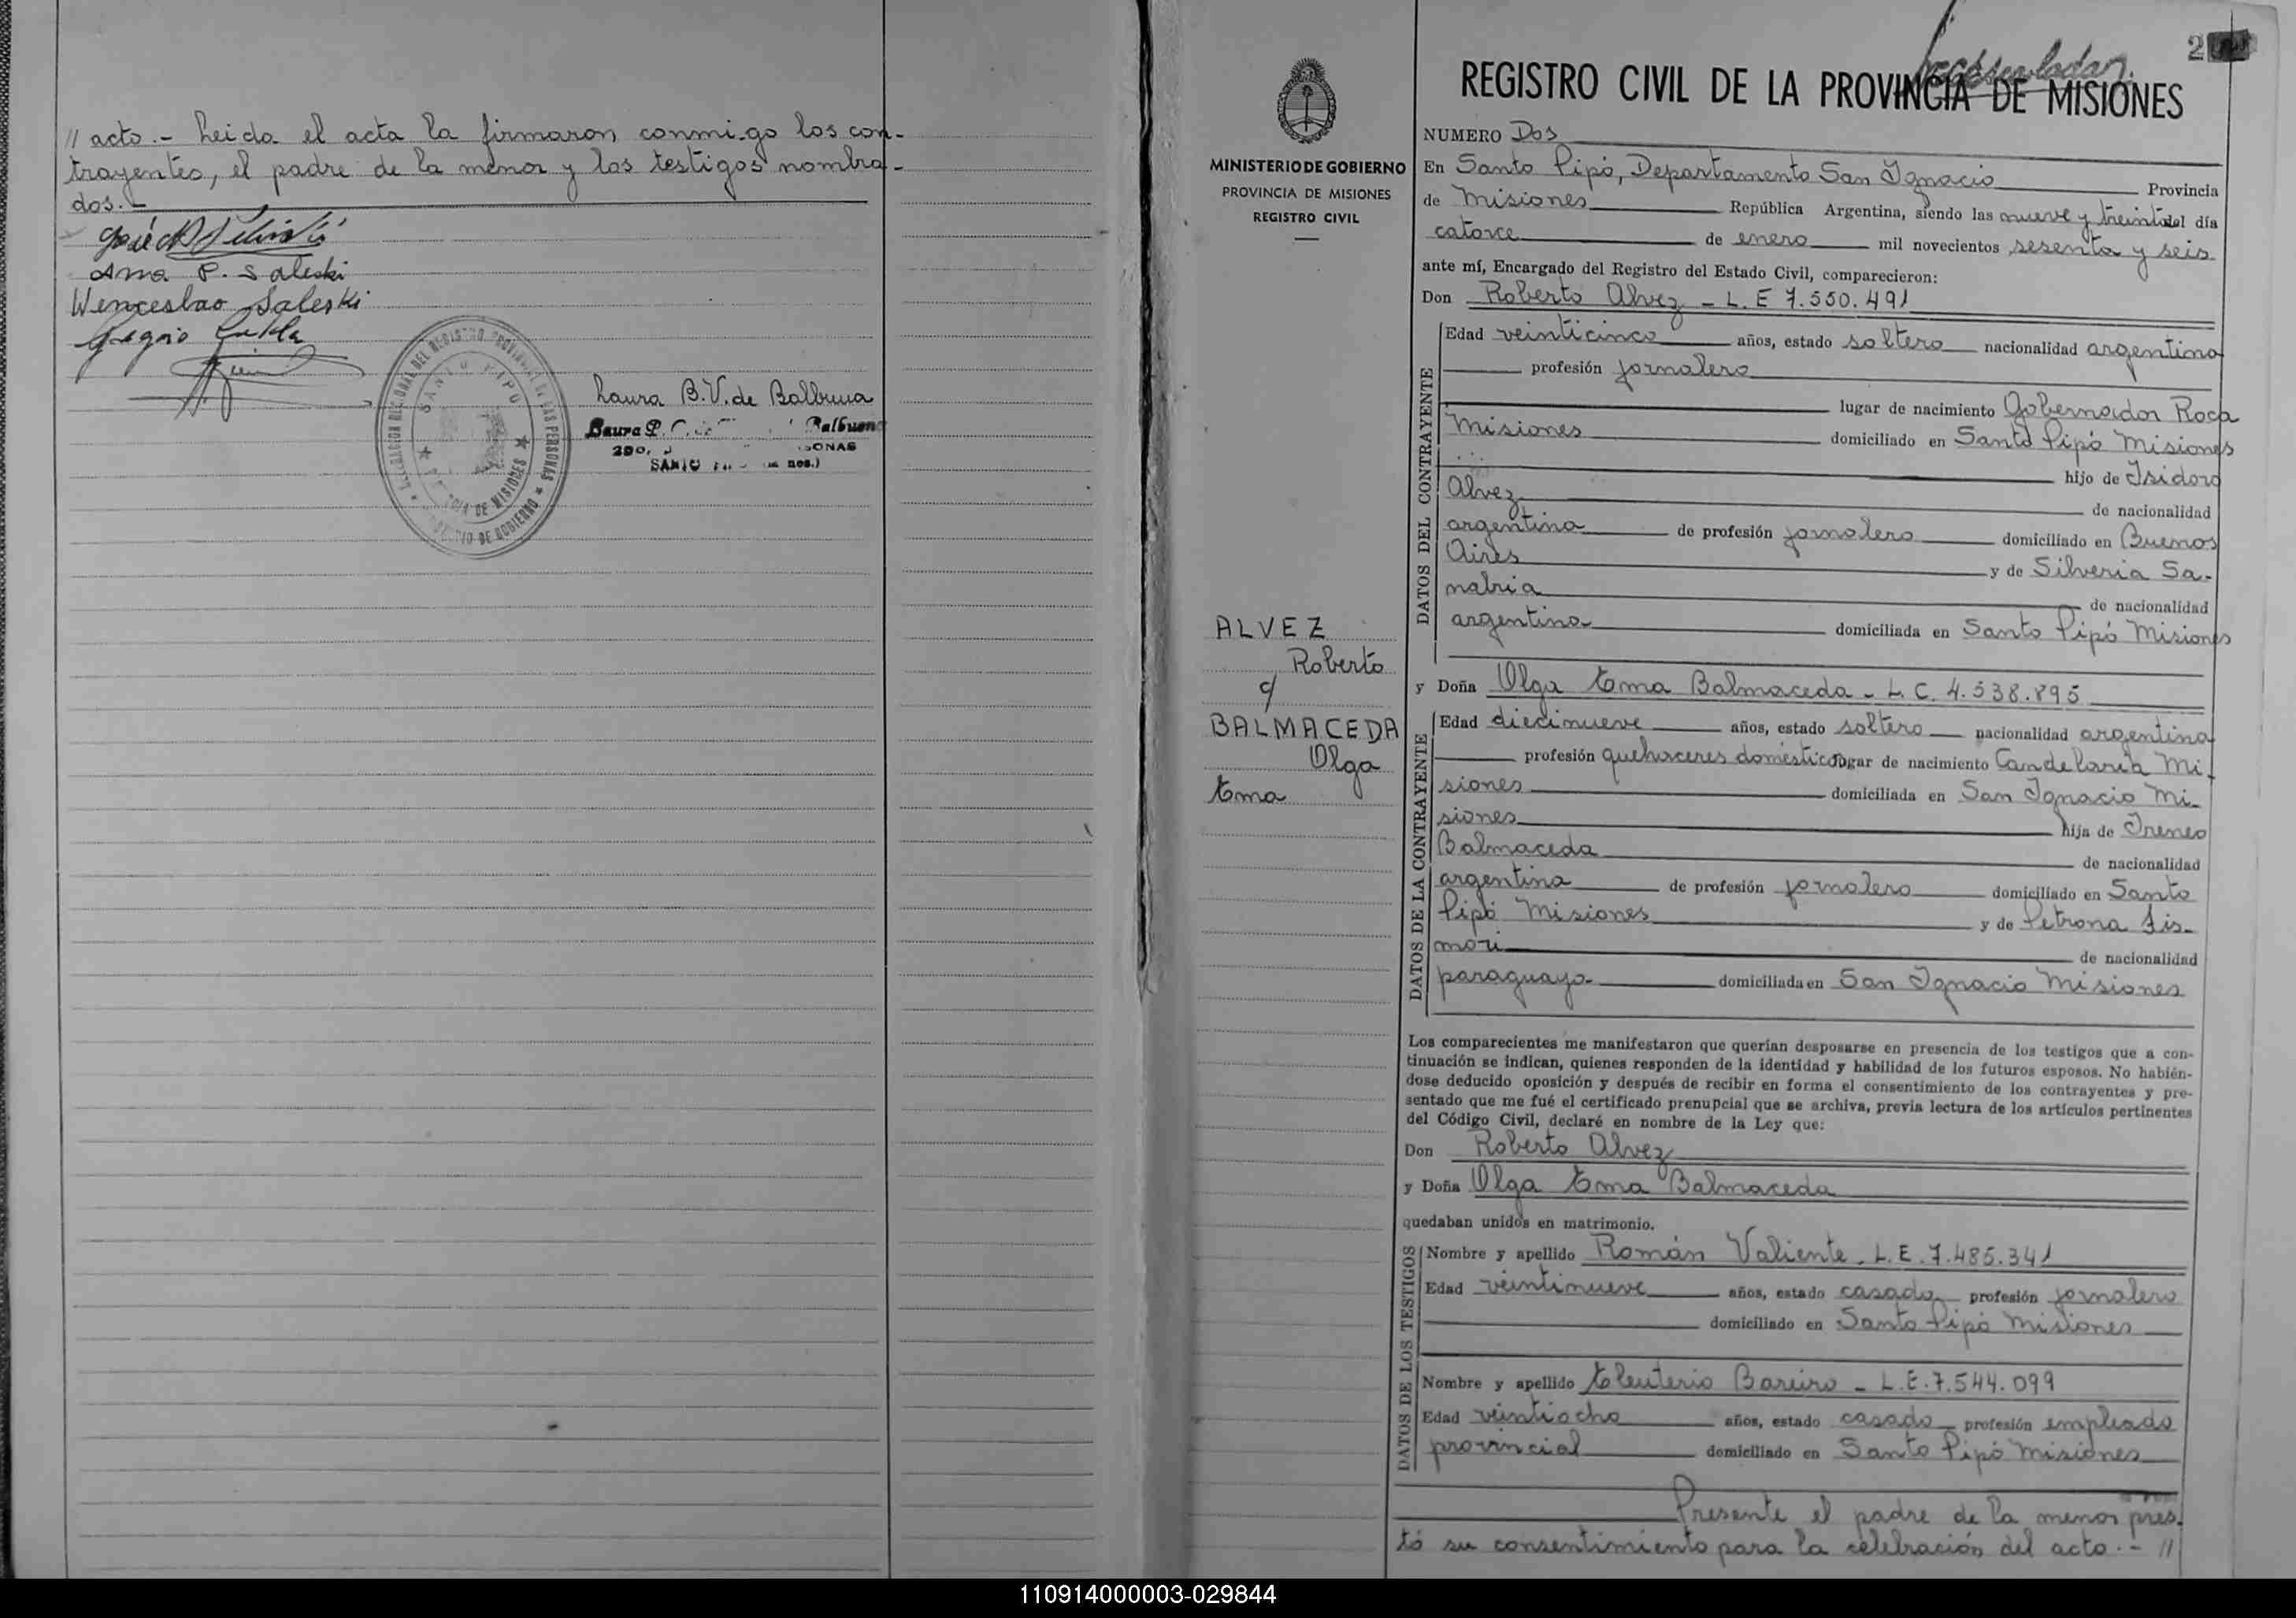 // acto.- Leida el acta la firmaron conmigo los con-
trayentes, el padre de la menor y los testigos nombra-
dos.-
Ana P. Saleski
Wenceslao Saleski
Laura B. V. de Balbuena
Balbuena
SANTO PIPO
2
REGISTRO CIVIL DE LA PROVINCIA DE MISIONES
MINISTERIO DE GOBIERNO
PROVINCIA DE MISIONES
REGISTRO CIVIL
NUMERO Dos
En Santo Pipó, Departamento San Ignacio Provincia
de Misiones República Argentina, siendo las nueve y treinta del día
catorce de enero mil novecientos sesenta y seis
ante mí, Encargado del Registro del Estado Civil, comparecieron:
Don Roberto Alvez - L. E 7.550.491
DATOS DEL CONTRAYENTE
Edad veinticinco años, estado soltero nacionalidad argentina
profesión jornalero
lugar de nacimiento Gobernador Roca
Misiones domiciliado en Santo Pipó Misiones
hijo de Isidoro
Alvez de nacionalidad
argentina de profesión jornalero domiciliado en Buenos
Aires y de Silveria Sa-
nabria de nacionalidad
argentina domiciliada en Santo Pipó Misiones
ALVEZ
Roberto
c/
BALMACEDA
Olga
Ema
y Doña Olga Ema Balmaceda - L. C. 4.538.895
DATOS DE LA CONTRAYENTE
Edad diecinueve años, estado soltera nacionalidad argentina
profesión quehaceres domésticos lugar de nacimiento Candelaria Mi-
siones domiciliada en San Ignacio Mi-
siones hija de Ireneo
Balmaceda de nacionalidad
argentina de profesión jornalero domiciliado en Santo
Pipó Misiones y de Petrona
de nacionalidad
paraguaya domiciliada en San Ignacio Misiones
Los comparecientes me manifestaron que querían desposarse en presencia de los testigos que a con-
tinuación se indican, quienes responden de la identidad y habilidad de los futuros esposos. No habién-
dose deducido oposición y después de recibir en forma el consentimiento de los contrayentes y pre-
sentado que me fué el certificado prenupcial que se archiva, previa lectura de los artículos pertinentes
del Código Civil, declaré en nombre de la Ley que:
Don Roberto Alvez
y Doña Olga Ema Balmaceda
quedaban unidos en matrimonio.
DATOS DE LOS TESTIGOS
Nombre y apellido Román Valiente. L. E. 7.485.341
Edad veintinueve años, estado casado profesión jornalero
domiciliado en Santo Pipó Misiones
Nombre y apellido Eleuterio Bareiro - L. E. 7.544.099
Edad veintiocho años, estado casado profesión empleado
provincial domiciliado en Santo Pipó Misiones
Presente el padre de la menor pres-
tó su consentimiento para la celebración del acto.- //
110914000003-029844